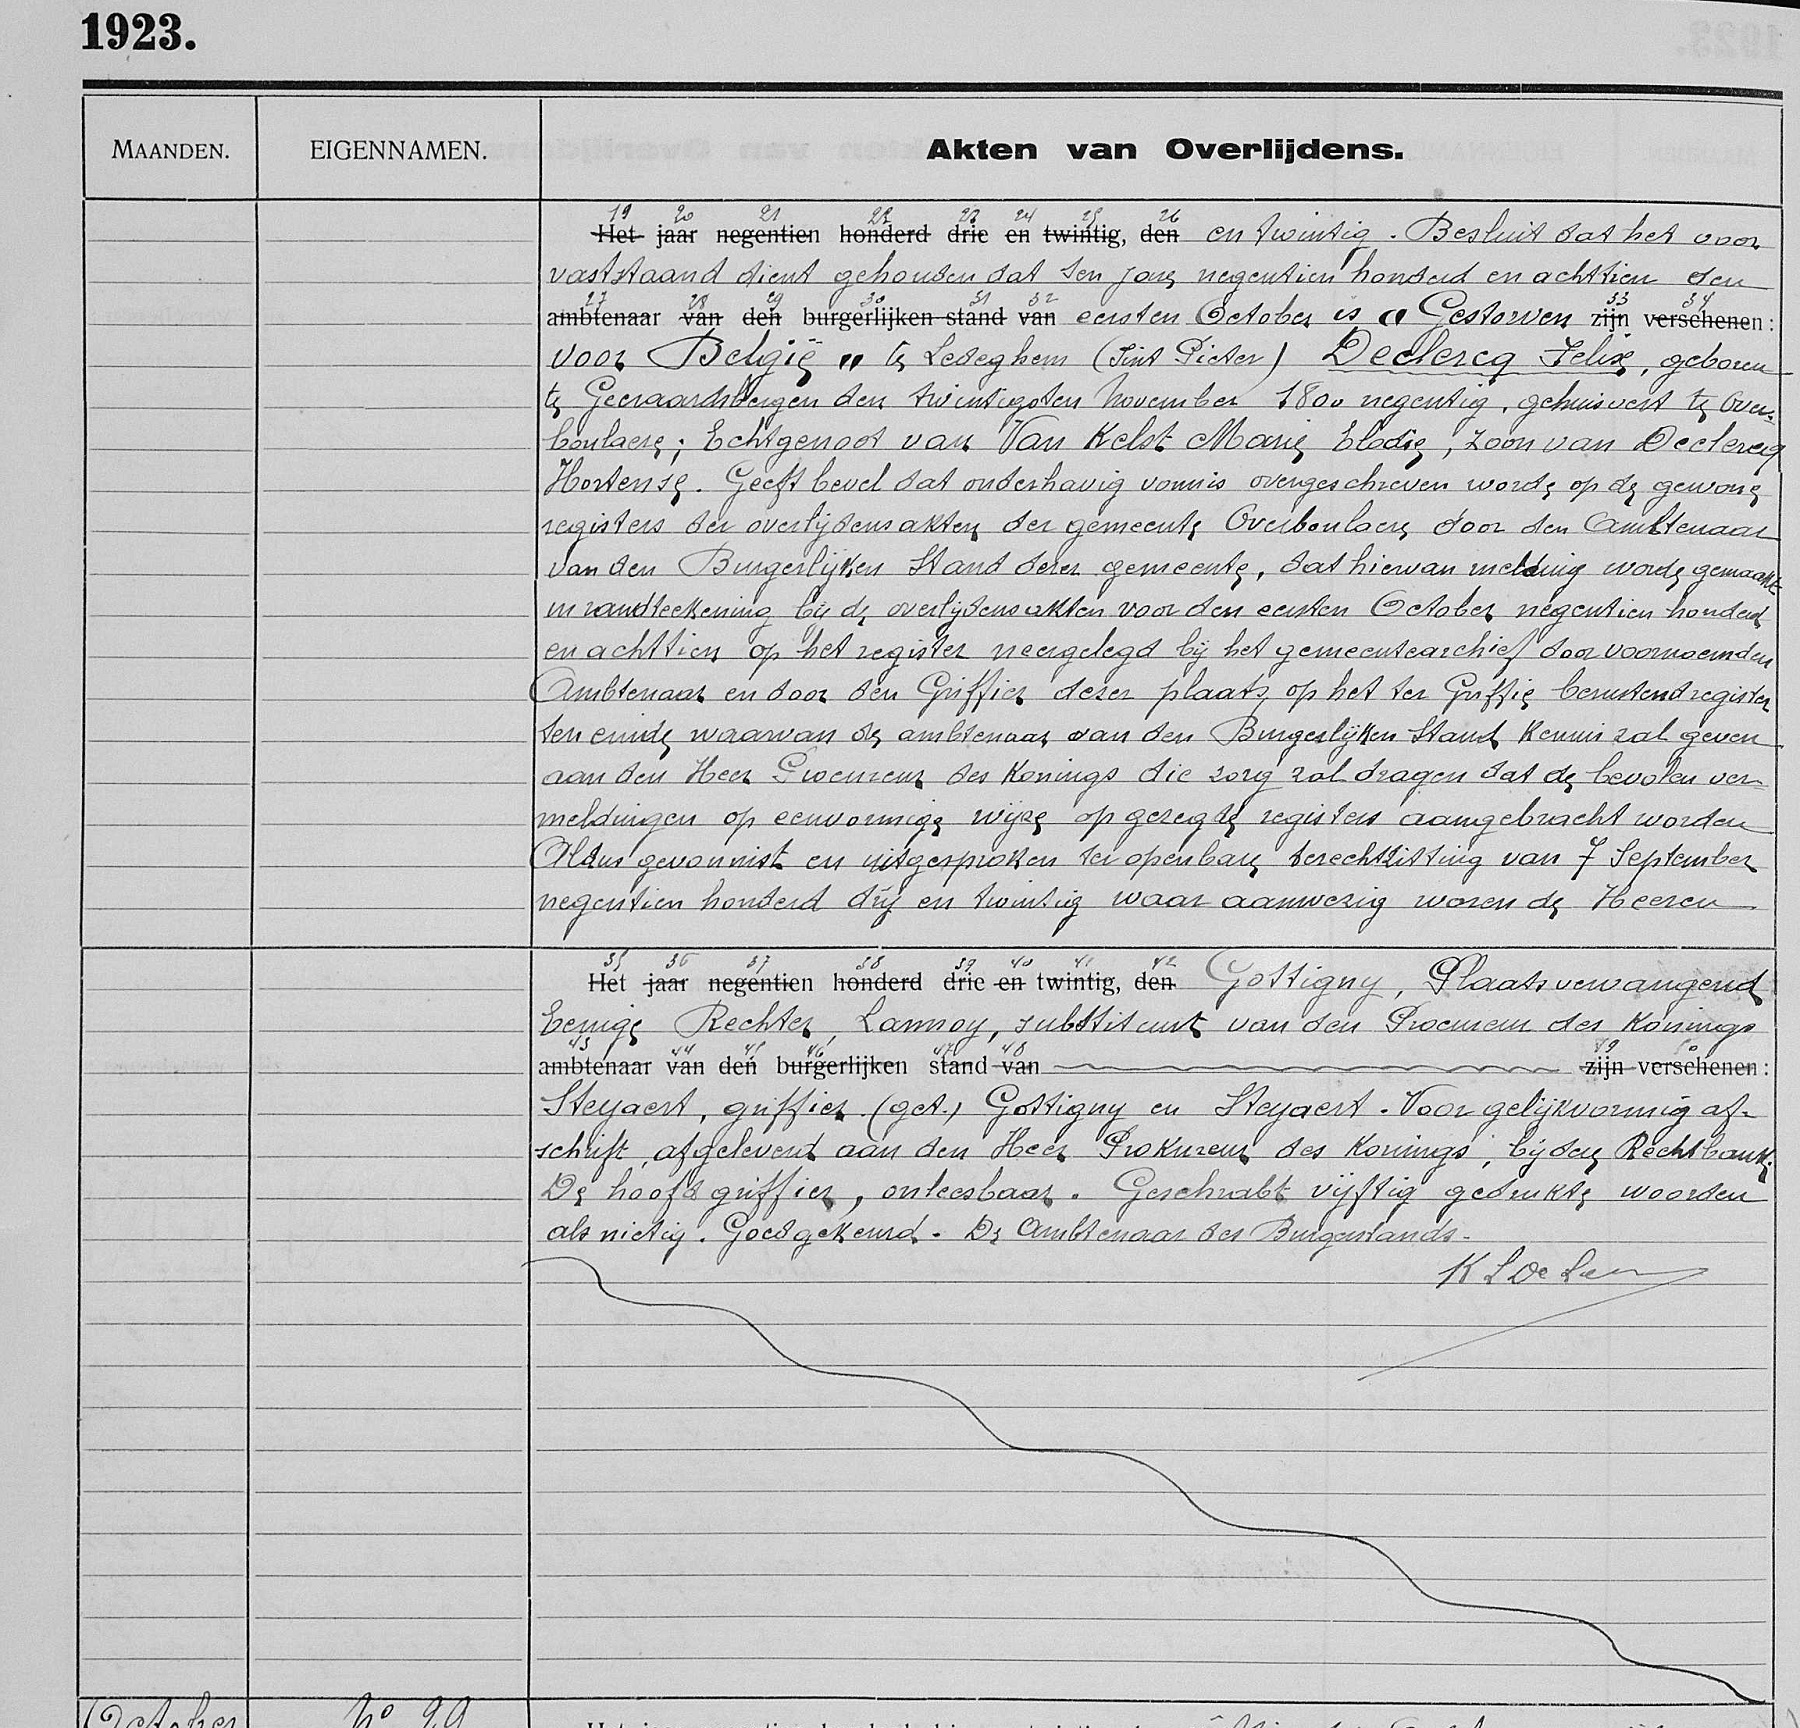 1923.
MAANDEN.
EIGENNAMEN.
Akten van Overlijdens.
19 20 21 22 23 24 25 26
Het jaar negentien honderd drie en twintig, den en twintig. Besluit dat het voor
vaststaand dient gehouden dat ten jare negentien honderd en achttien den
27 28 29 30 31 32 33 34
ambtenaar van den burgerlijken stand van eersten October is "Gestorven zijn verschenen:
voor België" te Ledeghem (Sint Pieter) Declercq Felix, geboren
te Geeraardsbergen den twintigsten November 1800 negentig, gehuisvest te Over-
boulaere; Echtgenoot van Van Kelst Marie Elodie, zoon van Declercq
Hortense. Geeft bevel dat onderhavig vonnis overgeschreven worde op de gewone
registers der overlijdensakten der gemeente Overboulaere door den Ambtenaar
van den Burgerlijken Stand dezer gemeente, dat hiervan melding worde gemaakt
in randteekening bij de overlijdensakten voor den eersten October negentien honderd
en achttien op het register neergelegd bij het gemeentearchief door voornoemden
Ambtenaar en door den Griffier dezer plaats op het ter Griffie berustend register
ten einde waarvan de ambtenaar van den Burgerlijken Stand kennis zal geven
aan den Heer Procureur des Konings die zorg zal dragen dat de bevolen ver-
meldingen op eenvormige wijze op gezegde registers aangebracht worden
Aldus gevonnist en uitgesproken ter openbare terechtzitting van 7 September
negentien honderd drij en twintig waar aanwezig waren de Heeren
35 36 37 38 39 40 41 42
Het jaar negentien honderd drie en twintig, den Gottigny, Plaatsvervangend
Eenige Rechter, Lannoy, substituut van den Procureur des Konings
43 44 45 46 47 48 49 50
ambtenaar van den burgerlijken stand van zijn verschenen:
Steyaert, griffier. (get.) Gottigny en Steyaert. Voor gelijkvormig af-
schrift, afgeleverd aan den Heer Prokureur des Konings, bij deze Rechtbank.
De hoofdgriffier, onleesbaar. Geschrabt vijftig gedrukte woorden
als nietig. Goedgekeurd. De Ambtenaar des Burgerstands.
October
No 29